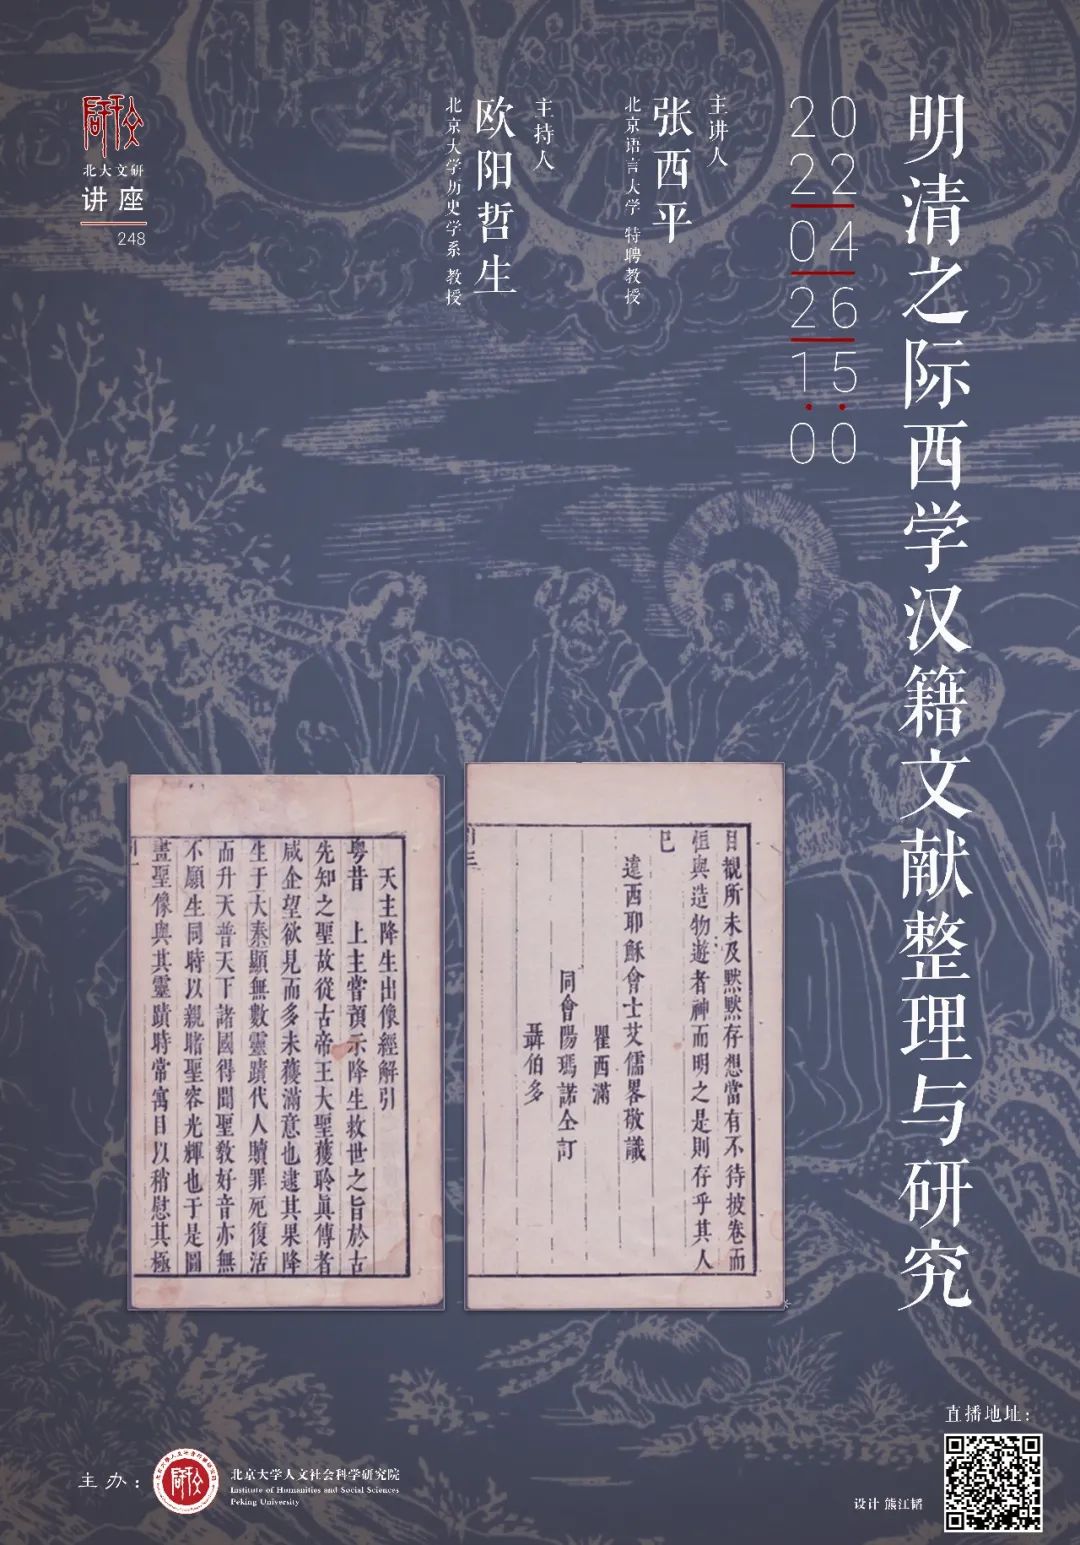 明清之际西学汉籍文献整理与研究
2022
04
26
15:00
主讲人
张西平
北京语言大学 特聘教授
主持人
欧阳哲生
北京大学历史学系 教授
北大文研
讲座
248
目觀所未及黙黙存想當有不待披卷而
恒與造物遊者神而明之是則存乎其人
已
遠西耶穌會士艾儒畧敬識
瞿西滿
同會陽瑪諾仝訂
聶伯多
天主降生出像經解引
粤昔 上主嘗預示降生救世之旨於古
先知之聖故從古帝王大聖獲聆眞傳者
咸企望欲見而多未獲滿意也逮其果降
生于大秦顯無數靈蹟代人贖罪死復活
而升天普天下諸國得聞聖敎好音亦無
不願生同時以親睹聖容光輝也于是圖
畫聖像與其靈蹟時常寓目以稍慰其極
直播地址:
主办:
北京大学人文社会科学研究院
Institute of Humanities and Social Sciences
Peking University
设计 熊江韬